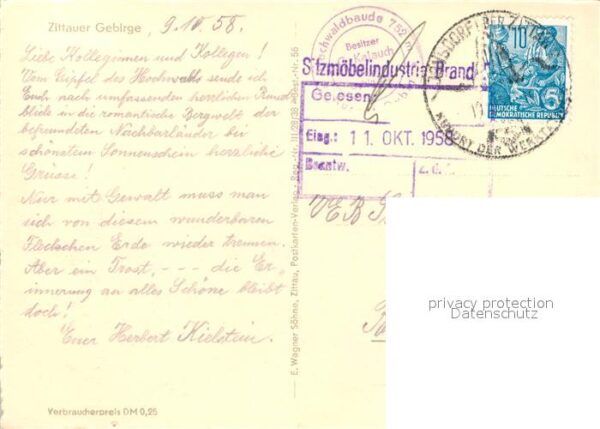 Zittauer Gebirge, 9. 10. 58.
Liebe Kolleginnen und Kollegen!
Vom Gipfel des Hochwalds sende ich
Euch nach umfassenden herrlichen Rund-
blick in die romantische Bergwelt der
befreundeten Nachbarländer bei
schönstem Sonnenschein herzliche
Grüsse!
Nur mit Gewalt muss man
sich von diesem wunderbaren
Fleckchen Erde wieder trennen.
Aber ein Trost, --- die Er-
innerung an alles Schöne bleibt
doch!
Euer Herbert Kielstein.
Verbraucherpreis DM 0,25
E. Wagner Söhne, Zittau, Postkarten-Verlag
Hochwaldbaude 752 m
Besitzer
Sitzmöbelindustrie Brand
Gelesen
Eing.: 11. OKT. 1958
Beantw.
z. d.
10+5
DEUTSCHE
DEMOKRATISCHE REPUBLIK
KURORT DER WERKTÄTIGEN
VEB
privacy protection
Datenschutz